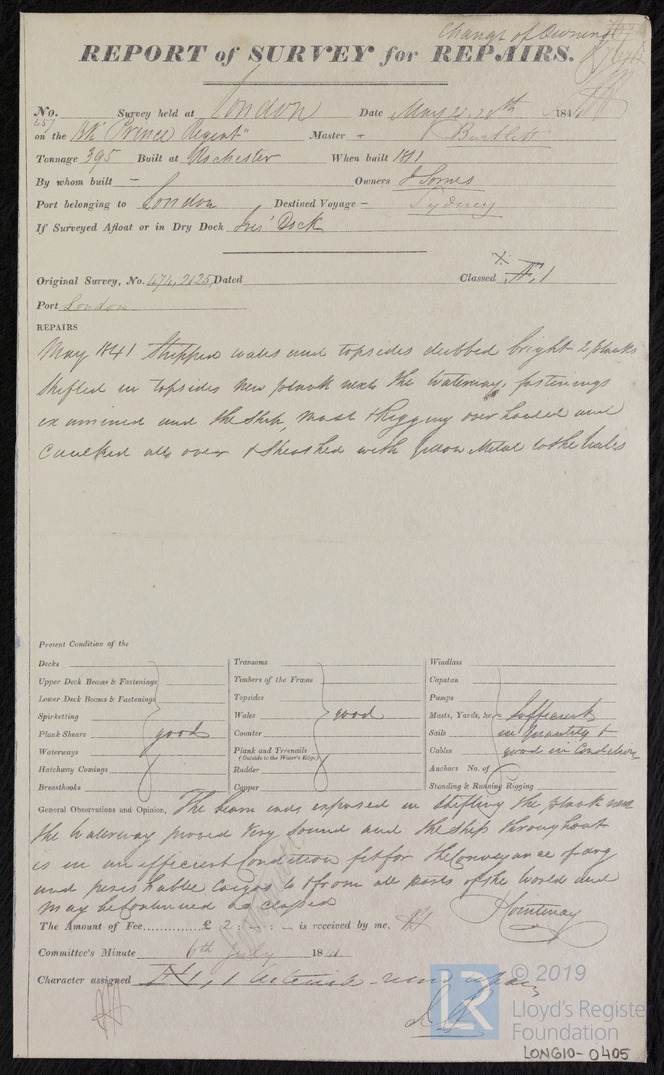 Change of Owners
REPORT of SURVEY for REPAIRS.
No. 457 Survey held at London Date May 21, 20th 1841
on the Bk "Prince Regent" Master - Bartlett
Tonnage 395 Built at Rochester When built 1811
By whom built - Owners J Somes
Port belonging to London Destined Voyage - Sydney
If Surveyed Afloat or in Dry Dock Dock
Original Survey, No. 474, 2125, Dated Classed Æ, 1
Port London
REPAIRS
May 1841 Stripped wales and topsides dubbed bright 2 planks
shifted in topsides new plank next the waterway, fastenings
examined and the Ship, Mast & Rigging over hauled and
Caulked all over & Sheathed with Yellow Metal to the Wales
Present Condition of the
Decks
Upper Deck Beams & Fastenings
Lower Deck Beams & Fastenings
Spirketting
Plank Shears good
Waterways
Hatchway Comings
Breasthooks
Transoms
Timbers of the Frame
Topsides
Wales good
Counter
Plank and Treenails
(Outside to the Water's Edge)
Rudder
Copper
Windlass
Capstan
Pumps
Masts, Yards, &c. Sufficient
Sails in Quantity &
Cables good in Condition
Anchors No. of
Standing & Running Rigging
General Observations and Opinion, The beam ends exposed in shifting the plank next
the Waterway proved very Sound and the Ship throughout
is in an efficient Condition fit for the Conveyance of dry
and perishable Cargos to & from all parts of the World and
may be Continued as classed
Courtenay
The Amount of Fee............ £ 2 : - : - is received by me,
Committee's Minute 6th July 1841
Character assigned Æ 1,
© 2019
LR
Lloyd's Register
Foundation
LON610-0405